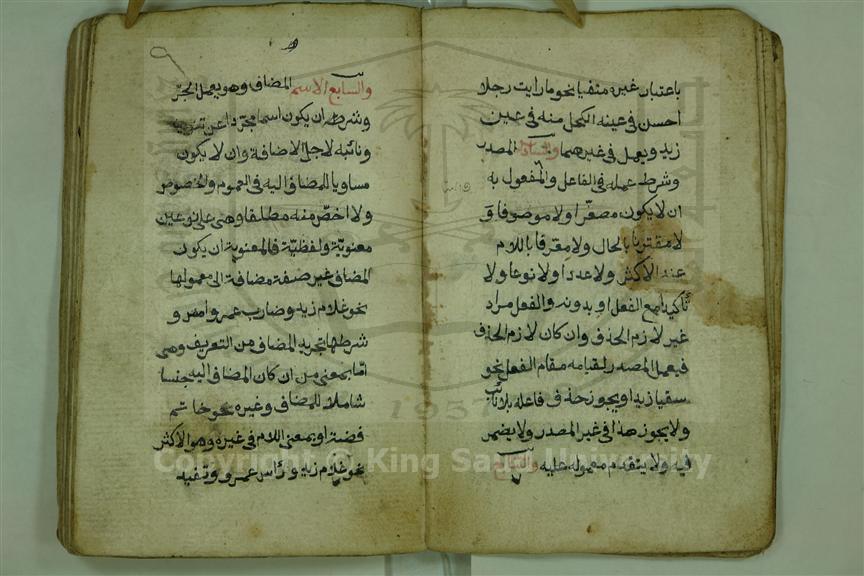 باعتبار غيره منفيا نحو ما رايت رجلا
احسن فى عينه الكحل منه فى عين
زيد ويعمل فى غيرهما والسادس المصدر
وشرط عمله فى الفاعل والمفعول به
ان لا يكون مصغرا ولا موصوفا و
لا مقترنا بالحال ولا معرفا باللام
عند الاكثر ولا عددا ولا نوعا ولا
تأكيدا مع الفعل او بدونه والفعل مراد
غير لازم الحذف وان كان لازم الحذف
فيعمل المصدر لقيامه مقام الفعل نحو
سقيا زيدا ويجوز حذف فاعله بلا نائب
ولا يجوز هذا فى غير المصدر ولا يضمر
فيه ولا يتقدم معموله عليه والسابع
والسابع الاسم المضاف وهو يعمل الجرّ
وشرطه ان يكون اسما مجردا عن تنوينه
ونائبه لاجل الاضافة وان لا يكون
مساويا للمضاف اليه فى العموم والخصوص
ولا اخصّ منه مطلقا وهى على نوعين
معنويّة ولفظيّة فالمعنوية ان يكون
المضاف غير صفة مضافة الى معمولها
نحو غلام زيد وضارب عمرو امس و
شرطها تجريد المضاف من التعريف وهى
امّا بمعنى من ان كان المضاف اليه جنسا
شاملا للمضاف وغيره نحو خاتم
فضة او بمعنى اللام فى غيره وهو الاكثر
نحو غلام زيد ورأس عمرو وتفيد
1957
Copyright © King Saud University